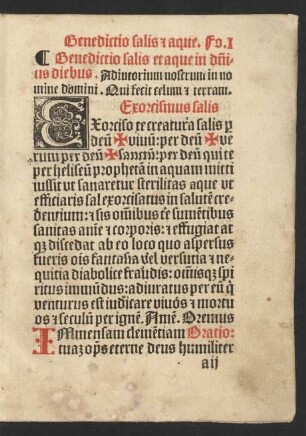 Benedictio salis ⁊ aque. Fo.I
¶ Benedictio salis et aque in dn̄i
cis diebus. Adiutorium nostrum in no
mine domini. Qui fecit celum ⁊ terram.
Exorcismus salis
EXorciso te creatura salis ꝑ
deū ✠ viuū: per deū ✠ ve
rum per deū ✠ sanctū: per deū qui te
per heliseū prophetā in aquam mitti
iussit ut sanaretur sterilitas aque vt
efficiaris sal exorcisatus in salutē cre
dentium: ⁊ sis om̄ibus te sumētibus
sanitas anie ⁊ corporis: ⁊ effugiat at
qꝫ discedat ab eo loco quo aspersus
fueris ois fantasia vel versutia ⁊ ne
quitia diabolice fraudis: om̄isqꝫ spi
ritus immūdus: adiuratus per eū q̄
venturus est iudicare viuos ⁊ mortu
os ⁊ seculū per ignē. Amē. Oremus
IMmensam clemētiam Oratio:
tuaꝫ op̄s eterne deus humiliter
aij